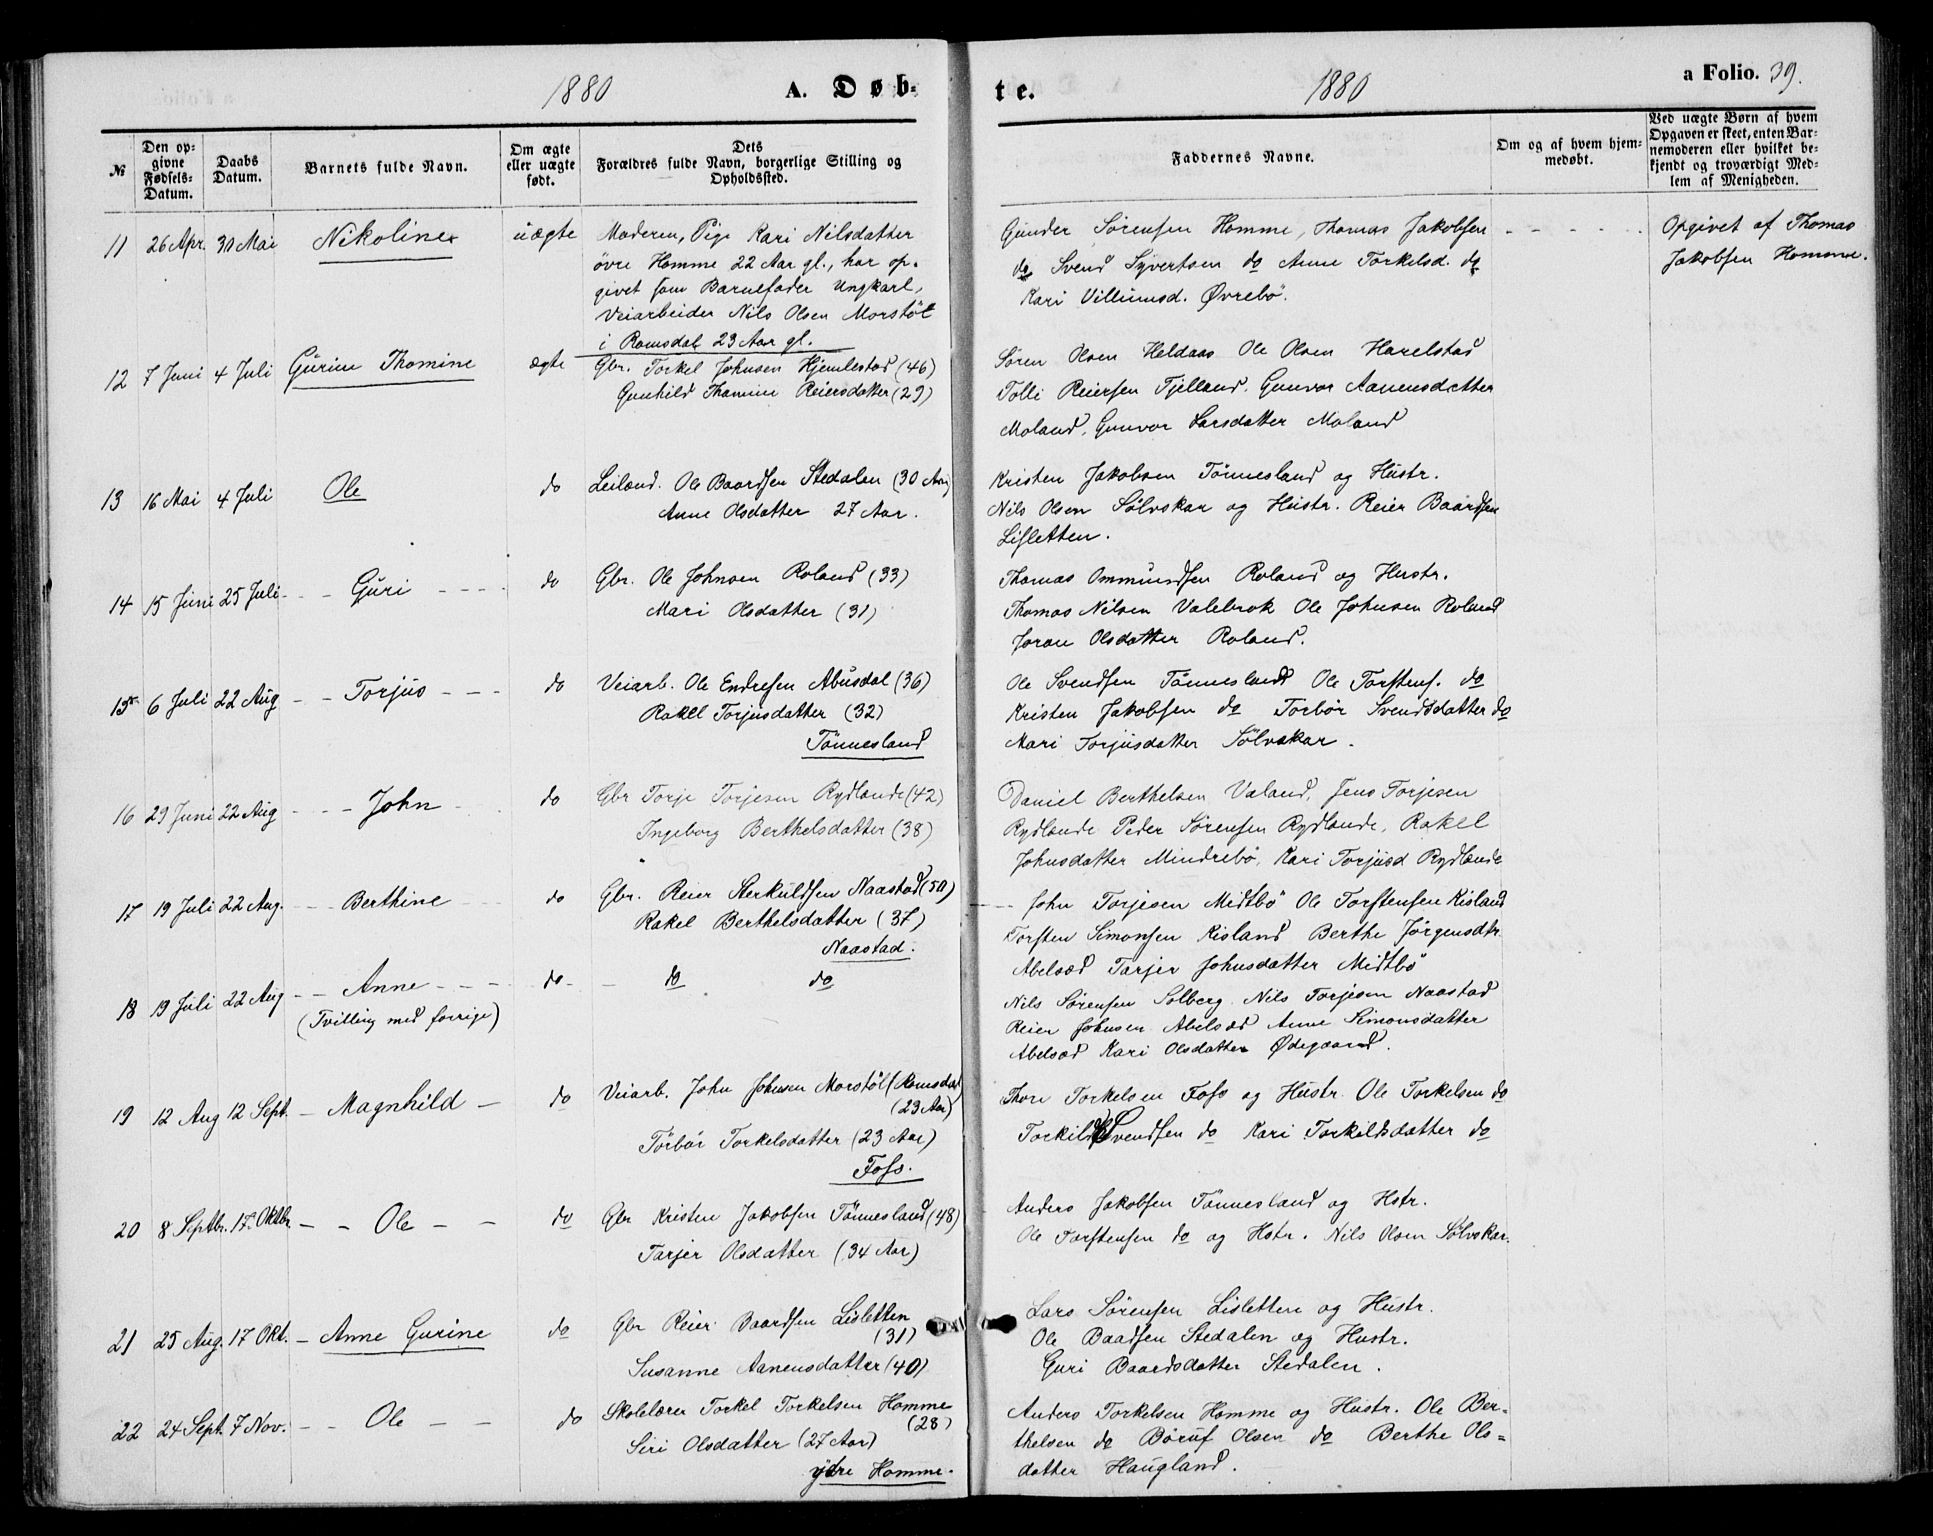 1880 A. Døb-
№
Den op-
givne
Fødsels-
Datum.
Daabs
Datum.
Barnets fulde Navn.
Om ægte
eller uægte
født.
Dets
Forældres fulde Navn, borgerlige Stilling og
Opholdssted.
11 26 Apr. 30 Mai Nikoline uægte Moderen, Pige Kari Nilsdatter
øvre Homme 22 Aar gl., har op-
givet som Barnefader Ungkarl,
Veiarbeider Nils Olsen Morstöl
i Romsdal 23 Aar gl.
12 7 Juni 4 Juli Gurine Thomine ægte Gbr. Torkel Johnsen Hjemlestad (46)
Gunhild Thomine Reiersdatter (29)
13 16 Mai 4 Juli Ole do Leilænd. Ole Baardsen Stedalen (30 Aar)
Anne Olsdatter 27 Aar.
14 15 Juni 25 Juli - - Guri - - - - do Gbr. Ole Johnsen Roland (33)
Mari Olsdatter (31)
15 6 Juli 22 Aug - - Torjus - - - do Veiarb. Ole Endresen Abusdal (36)
Rakel Torjusdatter (32)
Tönnesland
16 29 Juni 22 Aug - - - John do Gbr Torje Torjesen Rydlande (42)
Ingeborg Berthelsdatter (38)
17 19 Juli 22 Aug. Berthine do Gbr. Reier Sterkuldsen Naastad (50)
Rakel Berthelsdatter (37)
Naastad.
18 19 Juli 22 Aug - - Anne - - - do - - do do
(Tvilling med forrige)
19 12 Aug 12 Sept. - Magnhild - do Veiarb. John Johnsen Morstöl (Romsdal
(23 Aar)
Törbör Torkelsdatter (23 Aar)
Foss.
20 8 Septbr. 17 Oktbr - - Ole - - do Gbr Kristen Jakobsen Tönnesland (48)
Tarjer Olsdatter (34 Aar)
21 25 Aug. 17 Okt. - Anne Gurine do Gbr Reier Baardsen Lisletten
(31)
Susanne Aanensdatter (40)
22 24 Sept. 7 Nov. - - Ole - - do Skolelærer Torkel Torkelsen Homme
(28)
Siri Olsdatter (27 Aar)
ydre Homme.
te. 1880 a Folio. 39.
Faddernes Navne.
Om og af hvem hjem-
medøbt.
Ved uægte Børn af hvem
Opgaven er skeet, enten Bar-
nemoderen eller hvilket be-
kjendt og troværdigt Med-
lem af Menigheden.
Gunder Sørensen Homme, Thomas Jakobsen - - - - - Opgivet af Thomas
do Svend Syvertsen do Anne Torkelsd. do Jakobsen Homme.
Kari Villumsd. Øvrebö.
Sören Olsen Heldaas Ole Olsen Harelstad
Tolli Reiersen Tjelland. Gunvor Aanensdatter
Moland, Gunvor Larsdatter Moland
Kristen Jakobsen Tönnesland og Hustr.
Nils Olsen Sölvskar og Hustr. Reier Baardsen
Lisletten.
Thomas Ommundsen Roland og Hustr.
Thomas Nilsen Valebrok Ole Johnsen Roland
Joran Olsdatter Roland.
Ole Svendsen Tönnesland Ole Torstens. do
Kristen Jakobsen do Torbör Svendsdatter do
Mari Torjusdatter Sölvskar.
Daniel Berthelsen Valand, Jens Torjesen
Rydlande Peder Sørensen Rydlande, Rakel
Johnsdatter Mindrebö, Kari Torjusd Rydlande
John Torjesen Midtbö Ole Torstensen Kisland
Torsten Simonsen Kisland Berthe Jörgensdtr
Abelsæd Tarjer Johnsdatter Midtbö
Nils Sørensen Solberg Nils Torjesen Naastad
Reier Johnsen Abelsæd Anne Simonsdatter
Abelsæd Kari Olsdatter Ødegaard.
Thore Torkelsen Foss og Hustr. Ole Torkelsen do
Torkild Svendsen do Kari Torkildsdatter do
Anders Jakobsen Tönnesland og Hstr.
Ole Torstensen do og Hstr. Nils Olsen Sölvskar.
Lars Sörensen Lisletten og Hustr.
Ole Baadsen Stedalen og Hustr.
Guri Baardsdatter Stedalen.
Anders Torkelsen Homme og Hustr. Ole Ber-
thelsen do Böruf Olsen do Berthe Ols-
datter Haugland.